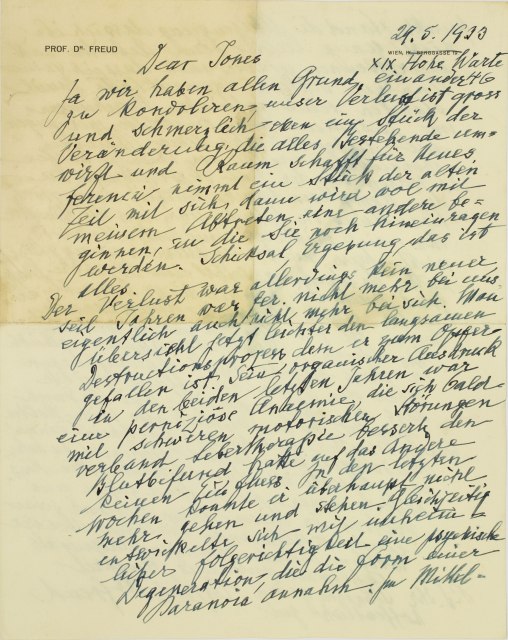 29.5.1933
PROF. DR. FREUD
WIEN, IX., BERGGASSE 19
XIX Hohe Warte 46
Dear Jones
Ja wir haben allen Grund, einander
zu kondoliren, unser Verlust ist gross
und schmerzlich, eben ein Stück der
Veränderung, die alles Bestehende um-
wirft und Raum schafft für Neues.
Ferenczi nimmt ein Stück der alten
Zeit mit sich, dann wird wol mit
meinem Abtreten eine andere be-
ginnen, in die Sie noch hineinragen
werden. Schicksal, Ergebung, das ist
alles.
Der Verlust war allerdings kein neuer,
seit Jahren war Fer. nicht mehr bei uns,
eigentlich auch nicht mehr bei sich. Man
übersieht jetzt leichter den langsamen
Destructionsprozess, dem er zum Opfer
gefallen ist. Sein organischer Ausdruck
in den beiden letzten Jahren war
eine perniziöse Anaemie, die sich bald
mit schweren motorischen Störungen
verband. Lebertherapie besserte den
Blutbefund, hatte auf das Andere
keinen Einfluss. In den letzten
Wochen konnte er überhaupt nicht
mehr gehen und stehen. Gleichzeitig
entwickelte sich mit unheim-
licher Folgerichtigkeit eine psychische
Degeneration, die die Form einer
Paranoia annahm. Im Mittel-